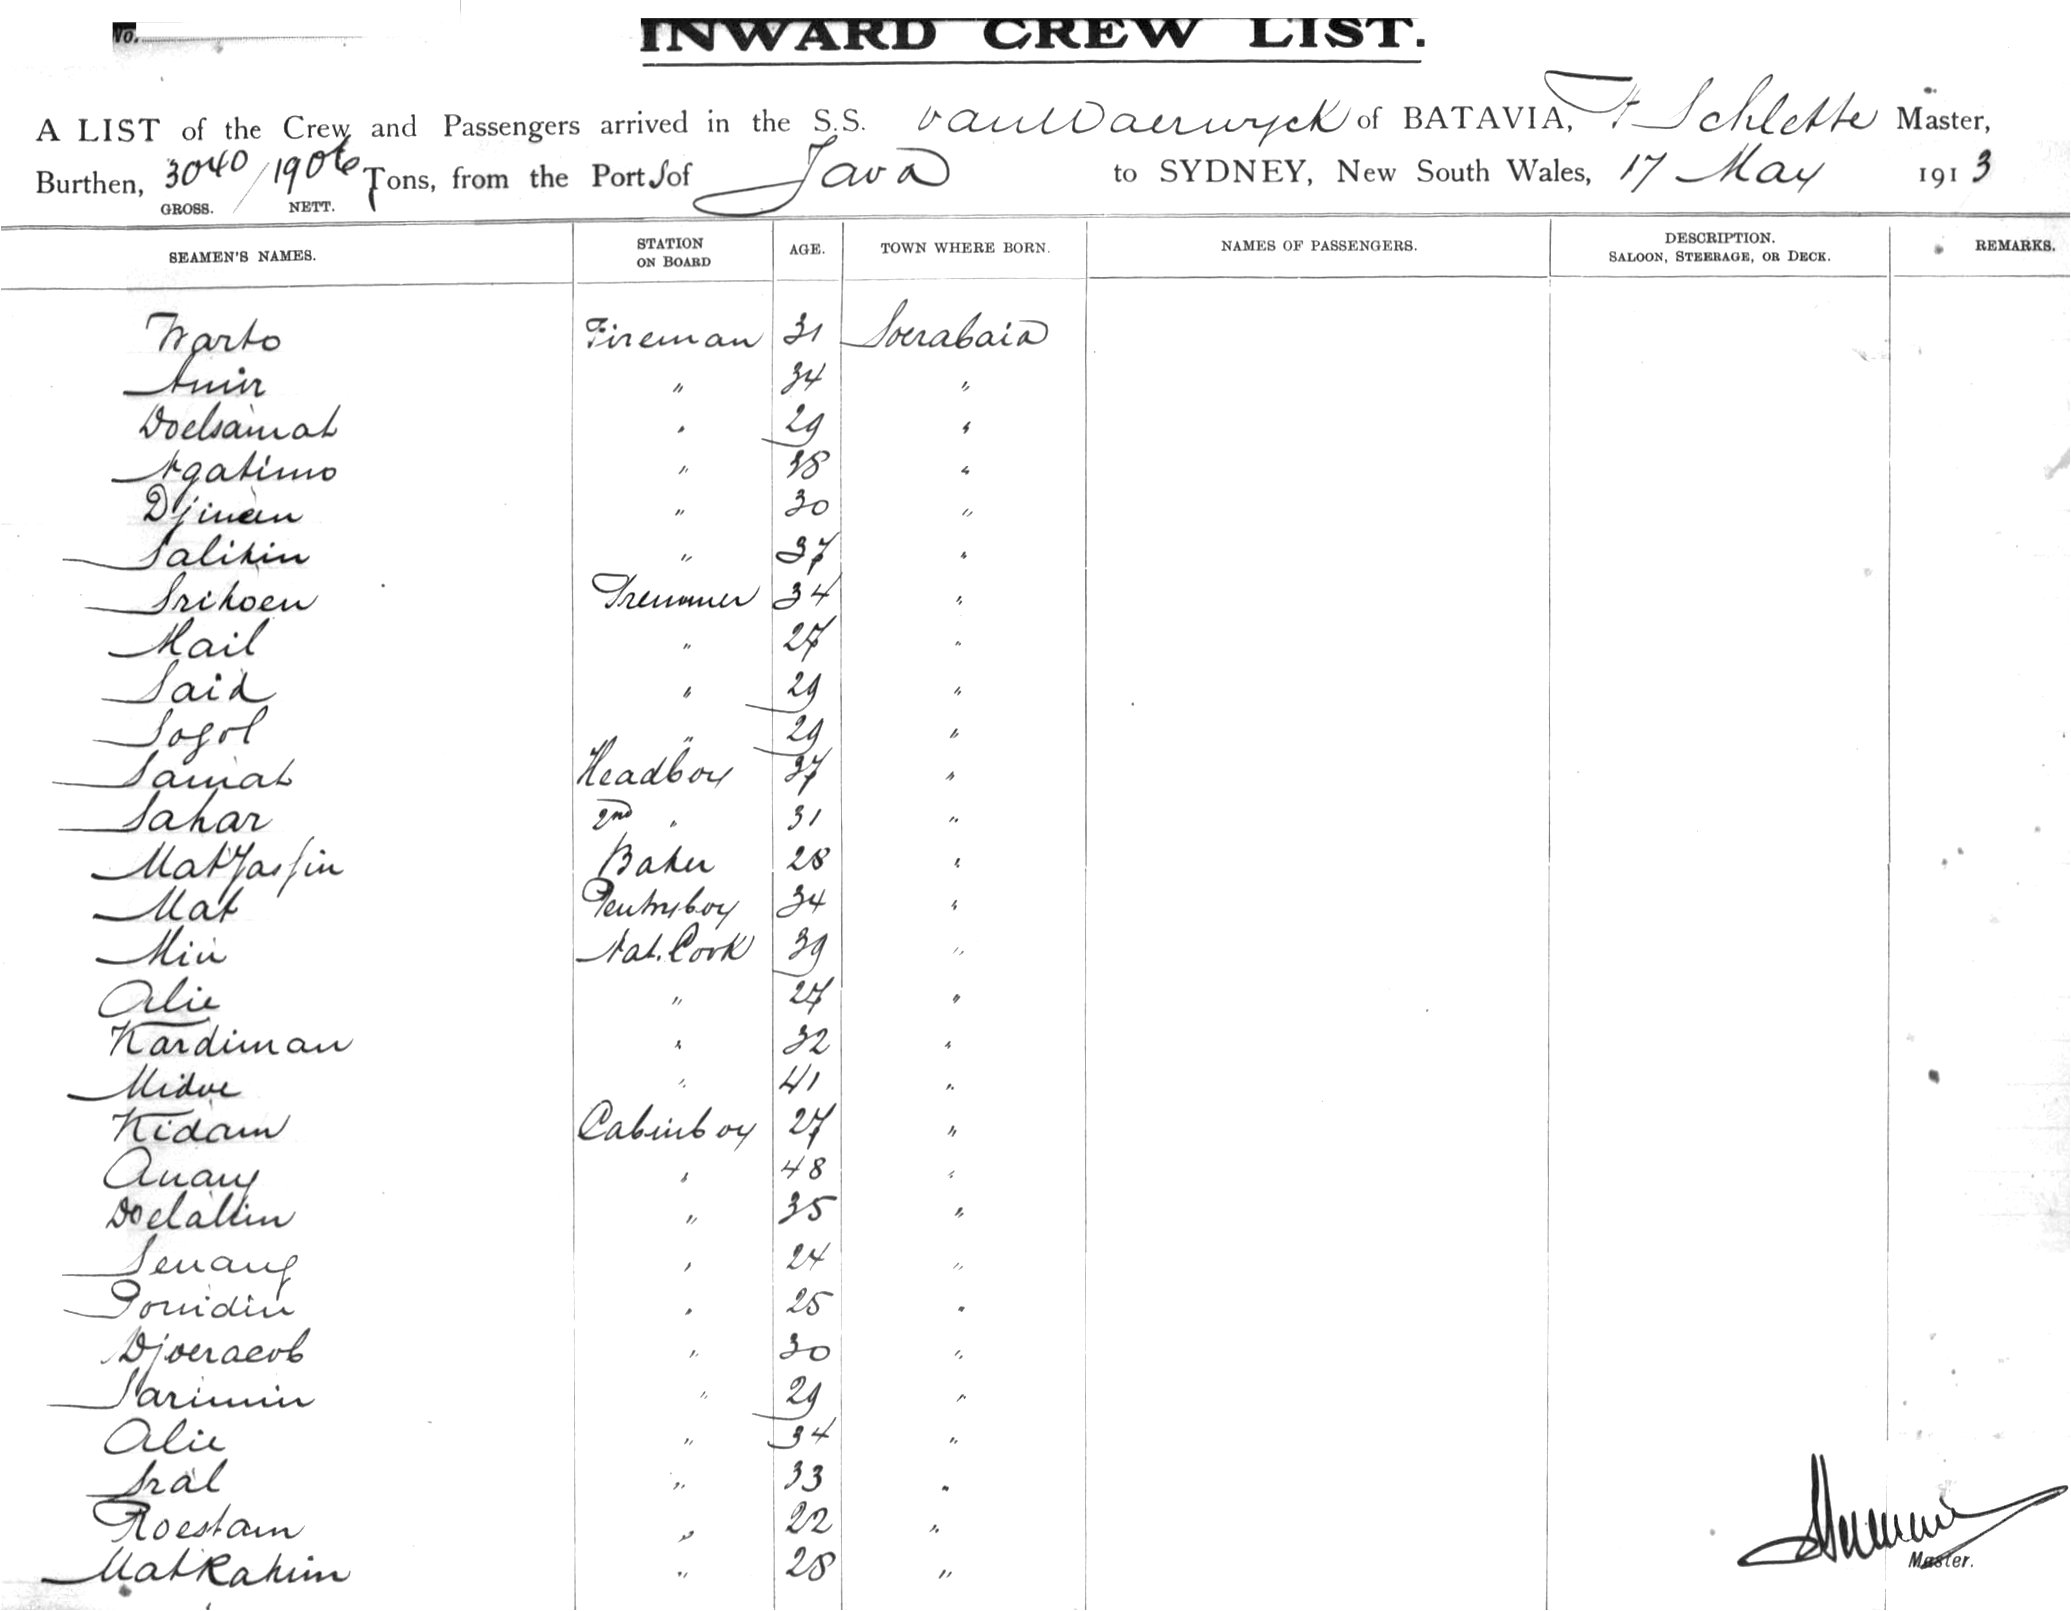 No.
INWARD CREW LIST.
A LIST of the Crew and Passengers arrived in the S.S. van Waerwyck of BATAVIA, Schlette Master,
Burthen, 3040 / 1906 Tons, from the Port s of Java to SYDNEY, New South Wales, 17 May 1913
GROSS. NETT.
SEAMEN'S NAMES. STATION ON BOARD AGE. TOWN WHERE BORN. NAMES OF PASSENGERS. DESCRIPTION. SALOON, STEERAGE, OR DECK. REMARKS.
Warto Fireman 31 Soerabaia
Amir " 34 "
Doelsamat " 29 "
Ngatimo " 38 "
Djinan " 30 "
Salikin " 37 "
Srikoen Tremmer 34 "
Mail " 27 "
Said " 29 "
Sogol " 29 "
Samat Headboy 37 "
Sahar 2nd " 31 "
MatJassin Baker 28 "
Mat Pentryboy 34 "
Min Nat. Cook 39 "
Alie " 27 "
Kardiman " 32 "
Midoe " 41 "
Kidam Cabinboy 27 "
Anang " 48 "
Doelallim " 35 "
Senang " 24 "
Ponidin " 25 "
Djoeraeob " 30 "
Sarimin " 29 "
Alie " 34 "
Sral " 33 "
Roestam " 22 "
MatRahim " 28 "
Master.